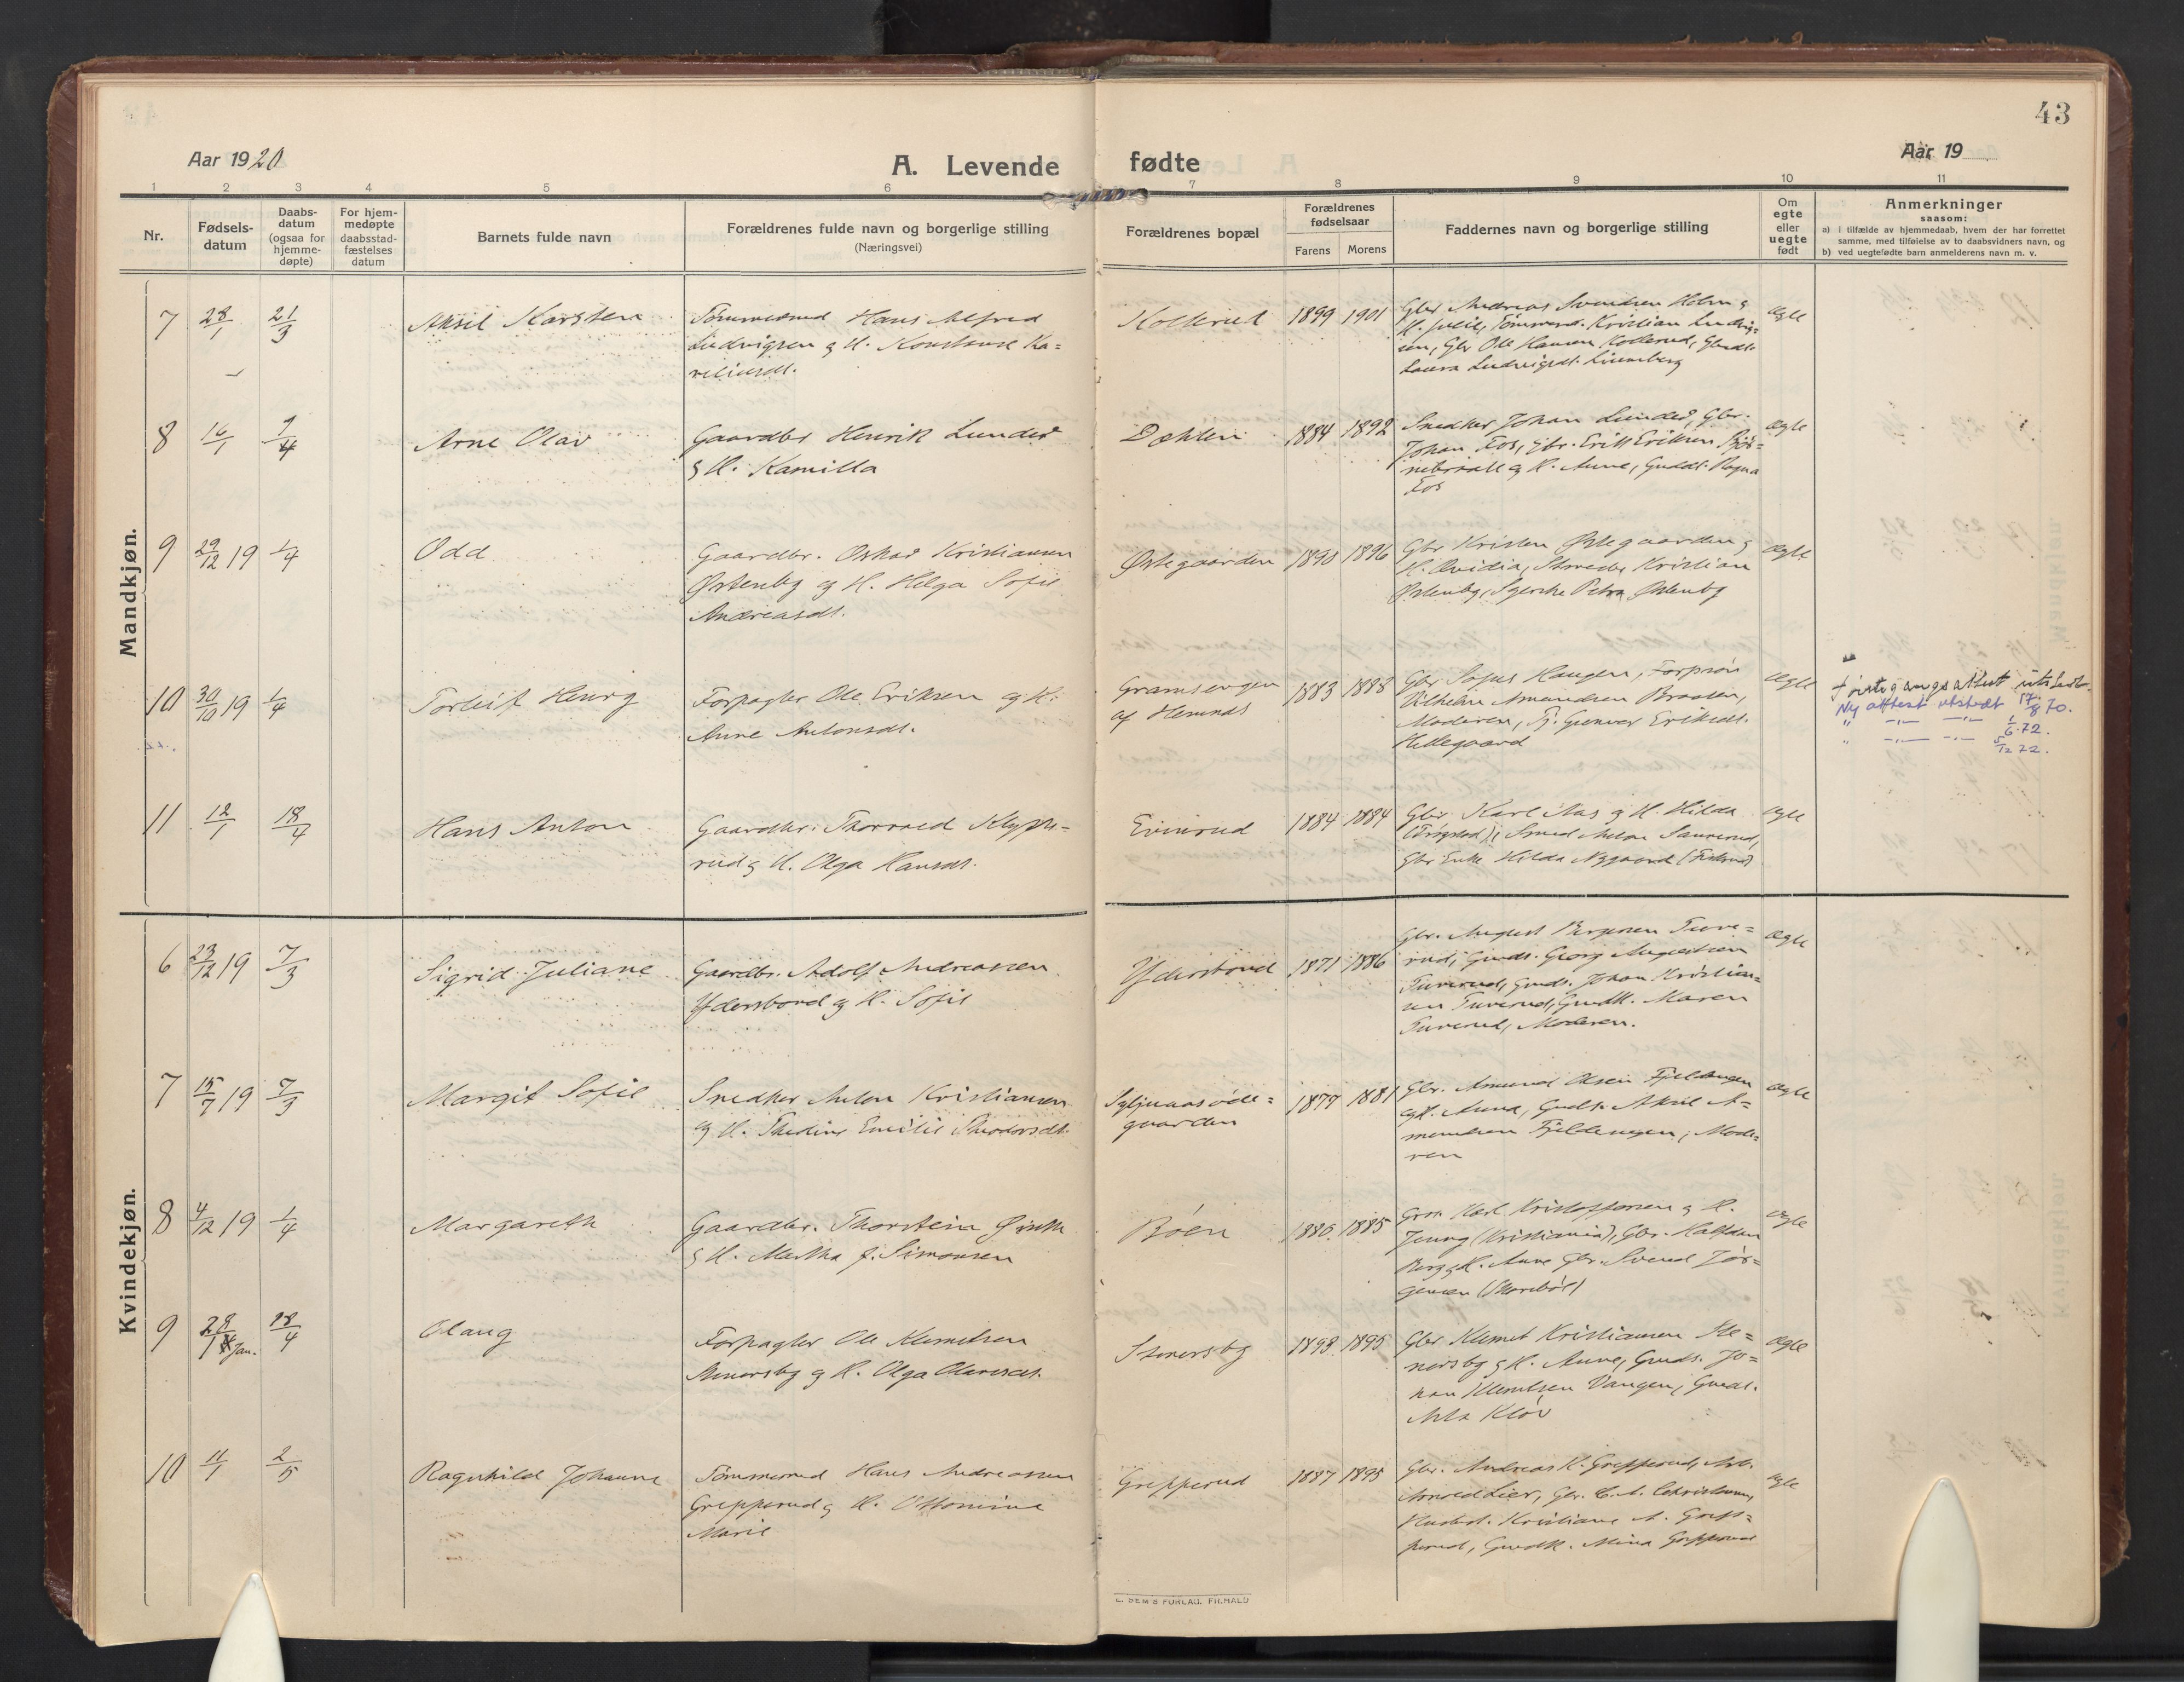 43
Aar 1920
A. Levende fødte
Aar 19
1 2 3 4 5 6 7 8 9 10 11
Nr.
Fødsels-
datum
Daabs-
datum
(ogsaa for
hjemme-
døpte)
For hjem-
medøpte
daabsstad-
fæstelses
datum
Barnets fulde navn
Forældrenes fulde navn og borgerlige stilling
(Næringsvei)
Forældrenes bopæl
Forældrenes
fødselsaar
Farens Morens
Faddernes navn og borgerlige stilling
Om
egte
eller
uegte
født
Anmerkninger
saasom:
a) i tilfælde av hjemmedaab, hvem der har forrettet
samme, med tilføielse av to daabsvidners navn, og
b) ved uegtefødte barn anmelderens navn m. v.
Mandkjøn.
7 28/1 21/3 Aksel Karsten
Tømmermd Hans Alfred
Ludvigsen g H. Konstanse Ka=
Kollerud 1899 1901
Gbr Andreas Svendsen Holm g
Kristian Ludvig=
sen, Gbr Ole Hansen Kollerud,
Laura Ludvigsdt. Linnerberg
Ægte
8 16/1 9/4 Arne Olav
Gaardbr Henrik Lunder
g H. Kamilla
Dæhlen 1884 1892
Snedker Johan Lunder, Gbr.
Johan Fos, Gbr. Erik Eriksen
g H. Anne, Ragna
Fos
Ægte
9 29/12 19 1/4 Odd
Gaardbr. Oskar Kristiansen
Østenby og H. Helga Sofie
Andreasdt.
Østegaarden 1890 1896
Gbr Kristen Østegaarden g
H. Ovidia, Kristian
Østenby, Petra Østenby
Ægte
10 30/10 19 1/4 Torleif Henry
Forpagter Ole Eriksen og H.
Anne Antonsdt.
Gramsengen
af Hemnæs
1883 1888
Gbr Sofus Haugen,
Vilhelm Amundsen Braaten,
Moderen, Eriksdt.
Hellegaard
Ægte
Ny attest utstedt 17/8 70.
" -"- -"- 1/6 72.
" -"- -"- 5/12 72.
11 12/1 18/4 Hans Anton
Gaardbr. Thorvald Klypp=
rud g H. Olga Hansdt.
Evinrud 1884 1884
Gbr. Karl Aas g H. Hilda
(Trøgstad), Smed Anton Sauerud,
Gbr Enke Hilda Nygaard
Ægte
Kvindekjøn.
6 23/12 19 7/3 Sigrid Juliane
Gaardbr. Adolf Andreassen
Ydersbond og H. Sofie
Ydersbond 1871 1886
Gbr. August Tuve=
rud, Gmds. Georg Augustsen
Tuverud, Gmds. Johan Kristian=
sen Tuverud, Maren
Tuverud, Moderen.
Ægte
7 15/7 19 7/3 Margit Sofie
Snedker Anton Kristiansen
g H. Emilie Theodorsdt.
gaarden
1877 1881
Gbr. Amund Olsen Fjeldengen
og H. Anna, Gmds. Aksel A=
mundsen Fjeldengen, Mode=
ren
Ægte
8 4/12 19 1/4 Margareth
Gaardbr. Thorstein
g H. Martha f. Simonsen
Bøen 1880. 1885
Karl Kristoffersen g H.
Jenny (Kristiania), Gbr. Halfdan
Berg g H. Anne Gbr. Svend Jør=
gensen
Ægte
9 28/1 Jan. 18/4 Olaug
Forpagter Ole Klemetsen
Stenersby g H. Olga Olavesdt.
Stenersby 1893. 1895
Gbr Klemet Kristiansen Ste=
nersby g H. Anne, Gmds. Jo=
han Klemetsen Vangen,
Asta Kløv
Ægte
10 11/1 2/5 Ragnhild Johanne
Tømmermd Hans Andreassen
Grepperud g H. Ottomine
Marie
Grepperud 1887 1895
Gbr. Andreas K. Grepperud, Arb.
Arnold Lier, Gbr. C. A. Christensen,
Kristiane A. Grep=
perud, Mina Grepperud
Ægte
E. SEM'S FORLAG. FR.HALD